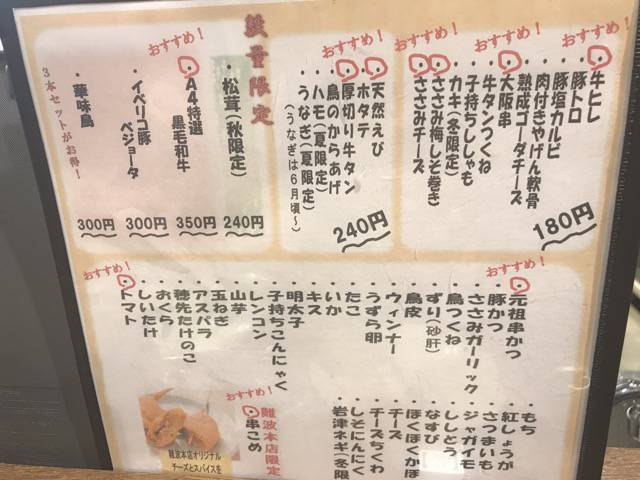 おすすめ！
・牛ヒレ
・豚トロ
・豚塩カルビ
・肉付きやげん軟骨
・熟成ゴーダチーズ
・大阪串
・牛タンつくね
・子持ちししゃも
・カキ(冬限定)
・ささみ梅しそ巻き
・ささみチーズ
おすすめ！
180円
・天然えび
・ホタテ
・厚切り牛タン
・鳥のからあげ
・ハモ(夏限定)
・うなぎ(夏限定)
(うなぎは6月頃〜)
おすすめ！
240円
数量限定
・松茸(秋限定)
240円
おすすめ！
・A4特選
黒毛和牛
350円
・イベリコ豚
ベジョータ
300円
・華味鳥
300円
3本セットがお得！
おすすめ！
・元祖串かつ
・豚かつ
・ささみガーリック
・鳥つくね
・ずり(砂肝)
・鳥皮
・ウィンナー
・うずら卵
・たこ
・いか
・キス
・明太子
・子持ちこんにゃく
・レンコン
・山芋
・玉ねぎ
・アスパラ
・穂先たけのこ
・おくら
・しいたけ
・トマト
おすすめ！
・もち
・紅しょうが
・さつまいも
・ジャガイモ
・ししとう
・なすび
・ほくほくかぼ
・チーズ
・チーズちくわ
・しそにんにく
・岩津ネギ(冬限
難波本店限定
・串こめ
おすすめ！
難波本店オリジナル
チーズとスパイスを